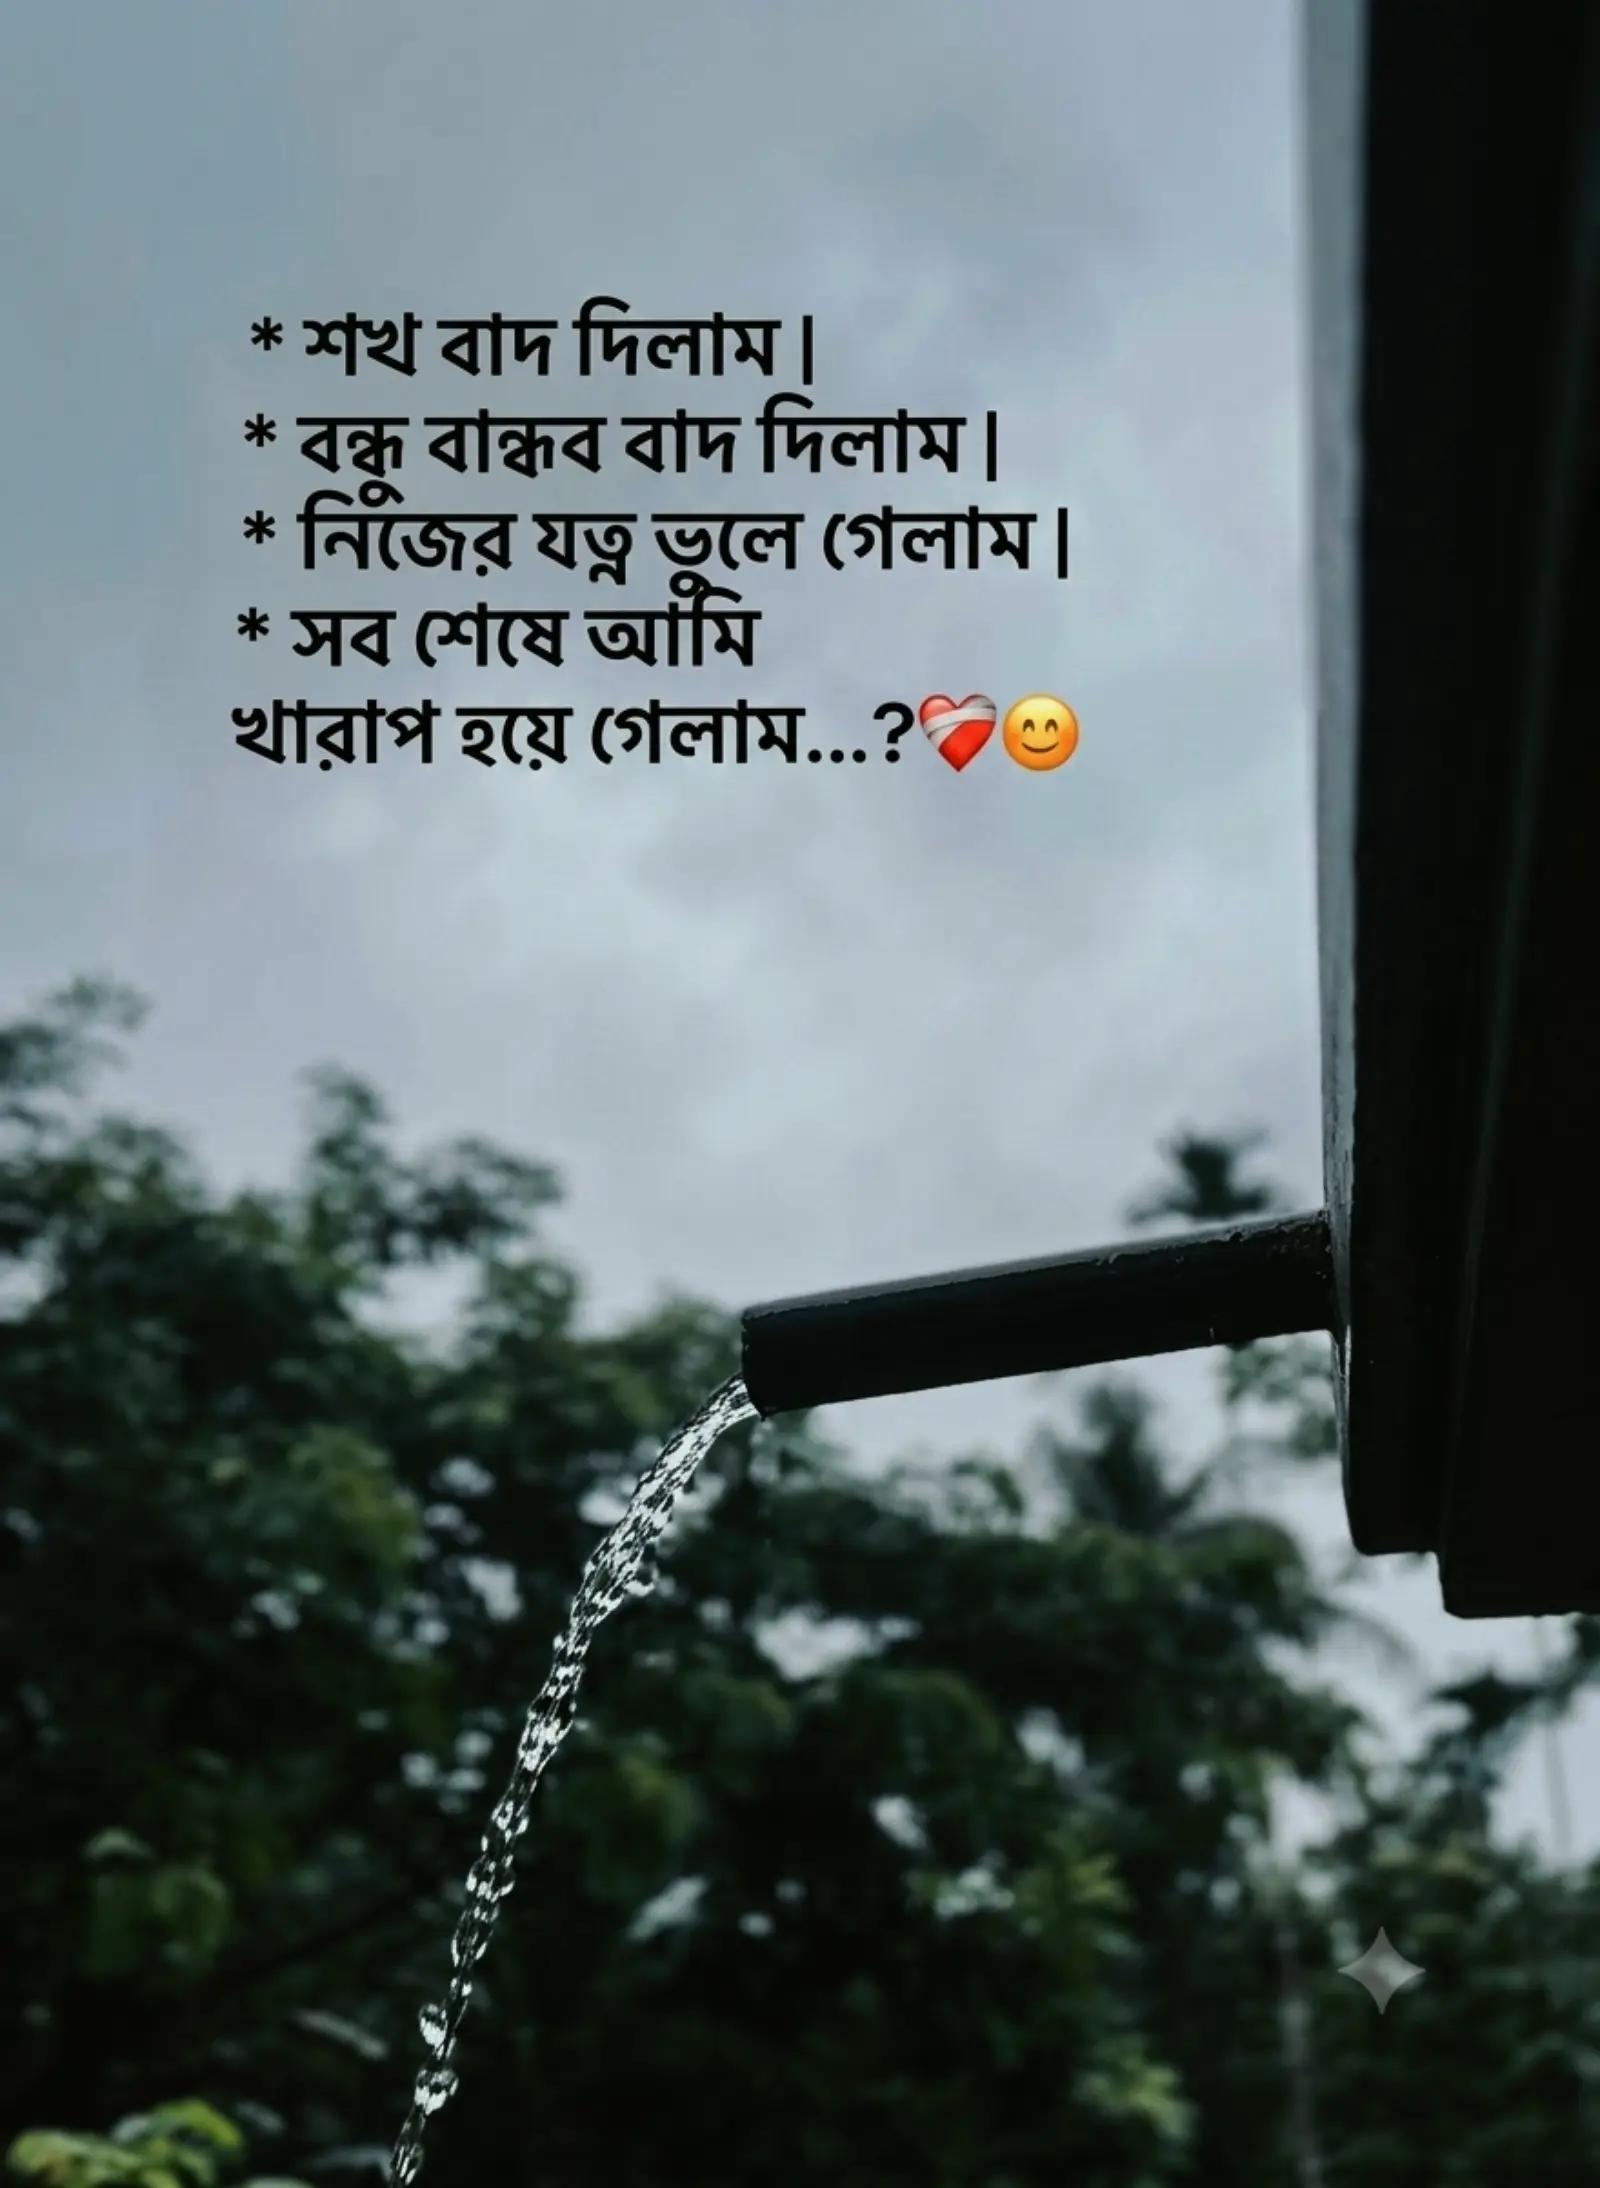 * শখ বাদ দিলাম|
* বন্ধু বান্ধব বাদ দিলাম|
* নিজের যত্ন ভুলে গেলাম|
* সব শেষে আমি
খারাপ হয়ে গেলাম...?❤️‍🩹😊